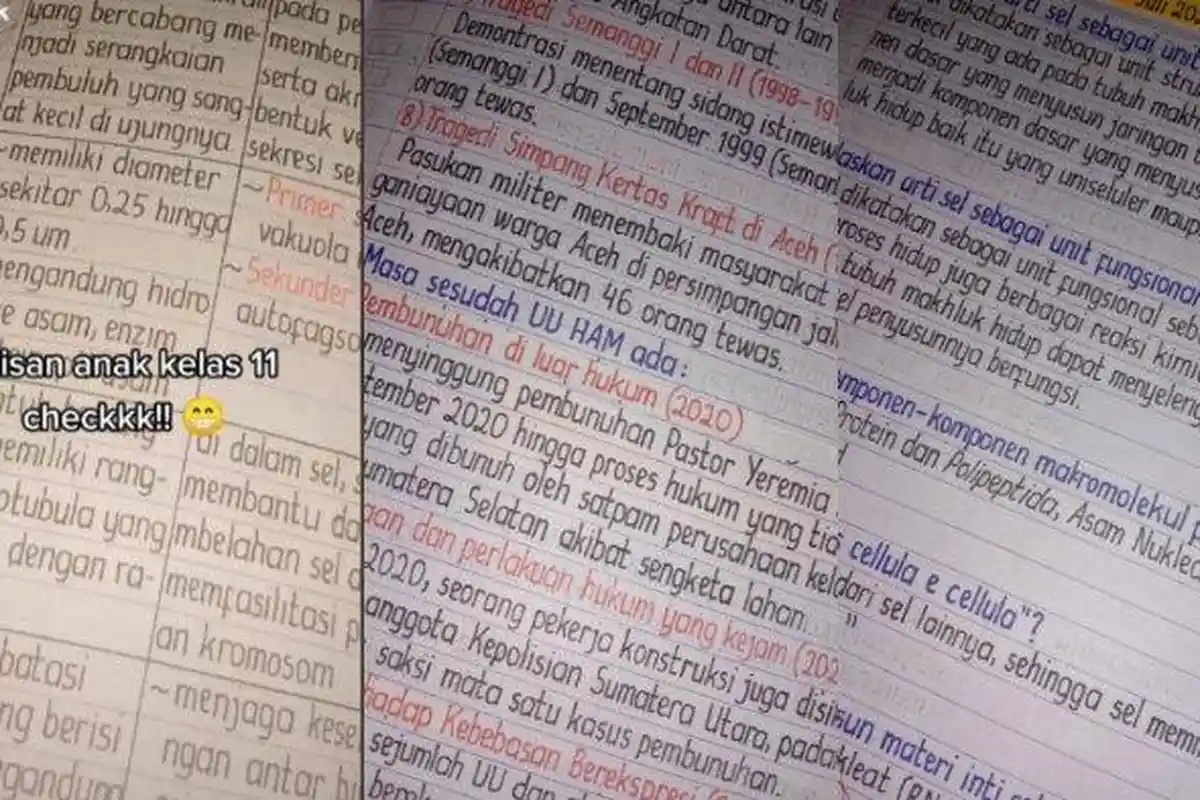 yang bercabang me-
njadi serangkaian
pembuluh yang sang-
at kecil di ujungnya
~memiliki diameter
sekitar 0,25 hingga
0,5 um
mengandung hidro
asam, enzim
isan anak kelas 11
checkkk!! 😁
memiliki rang-
otubula yang
dengan ra-
batasi
ng berisi
pada
serta
bentuk
sekresi
~Primer
vakuola
~Sekunder
di dalam sel,
membantu
mbelahan sel
memfasilitasi
an kromosom
~menjaga
ngan antar
antara lain
Angkatan Darat.
Tragedi Semanggi I dan II (1998-19
Demontrasi menentang sidang istimew
(Semanggi I) dan September 1999 (Seman
orang tewas.
8) Tragedi Simpang Kertas Kraft di Aceh (
Pasukan militer menembaki masyarakat
ganiayaan warga Aceh di persimpangan jal
Aceh, mengakibatkan 46 orang tewas.
Masa sesudah UU HAM ada:
Pembunuhan di luar hukum (2020)
menyinggung pembunuhan Pastor Yeremia
tember 2020 hingga proses hukum yang tid
yang dibunuh oleh satpam perusahaan kel
umatera Selatan akibat sengketa lahan.
aan dan perlakuan hukum yang kejam (202
2020, seorang pekerja konstruksi juga disi
anggota Kepolisian Sumatera Utara, pada
saksi mata satu kasus pembunuhan.
hadap Kebebasan Berekspresi
sejumlah UU dan
Juli 20
arti sel sebagai unit
dikatakan sebagai unit stru
terkecil yang ada pada tubuh makh
nen dasar yang menyusun jaringan
menjadi komponen dasar yang menyu
luk hidup baik itu yang uniseluler maup
laskan arti sel sebagai unit fungsional
dikatakan sebagai unit fungsional seb
roses hidup juga berbagai reaksi kimi
tubuh makhluk hidup dapat menyeleng
el penyusunnya berfungsi.
omponen-komponen makromolekul
Protein dan Polipeptida, Asam Nuklea
cellula e cellula"?
dari sel lainnya, sehingga sel mem
sun materi inti
kleat